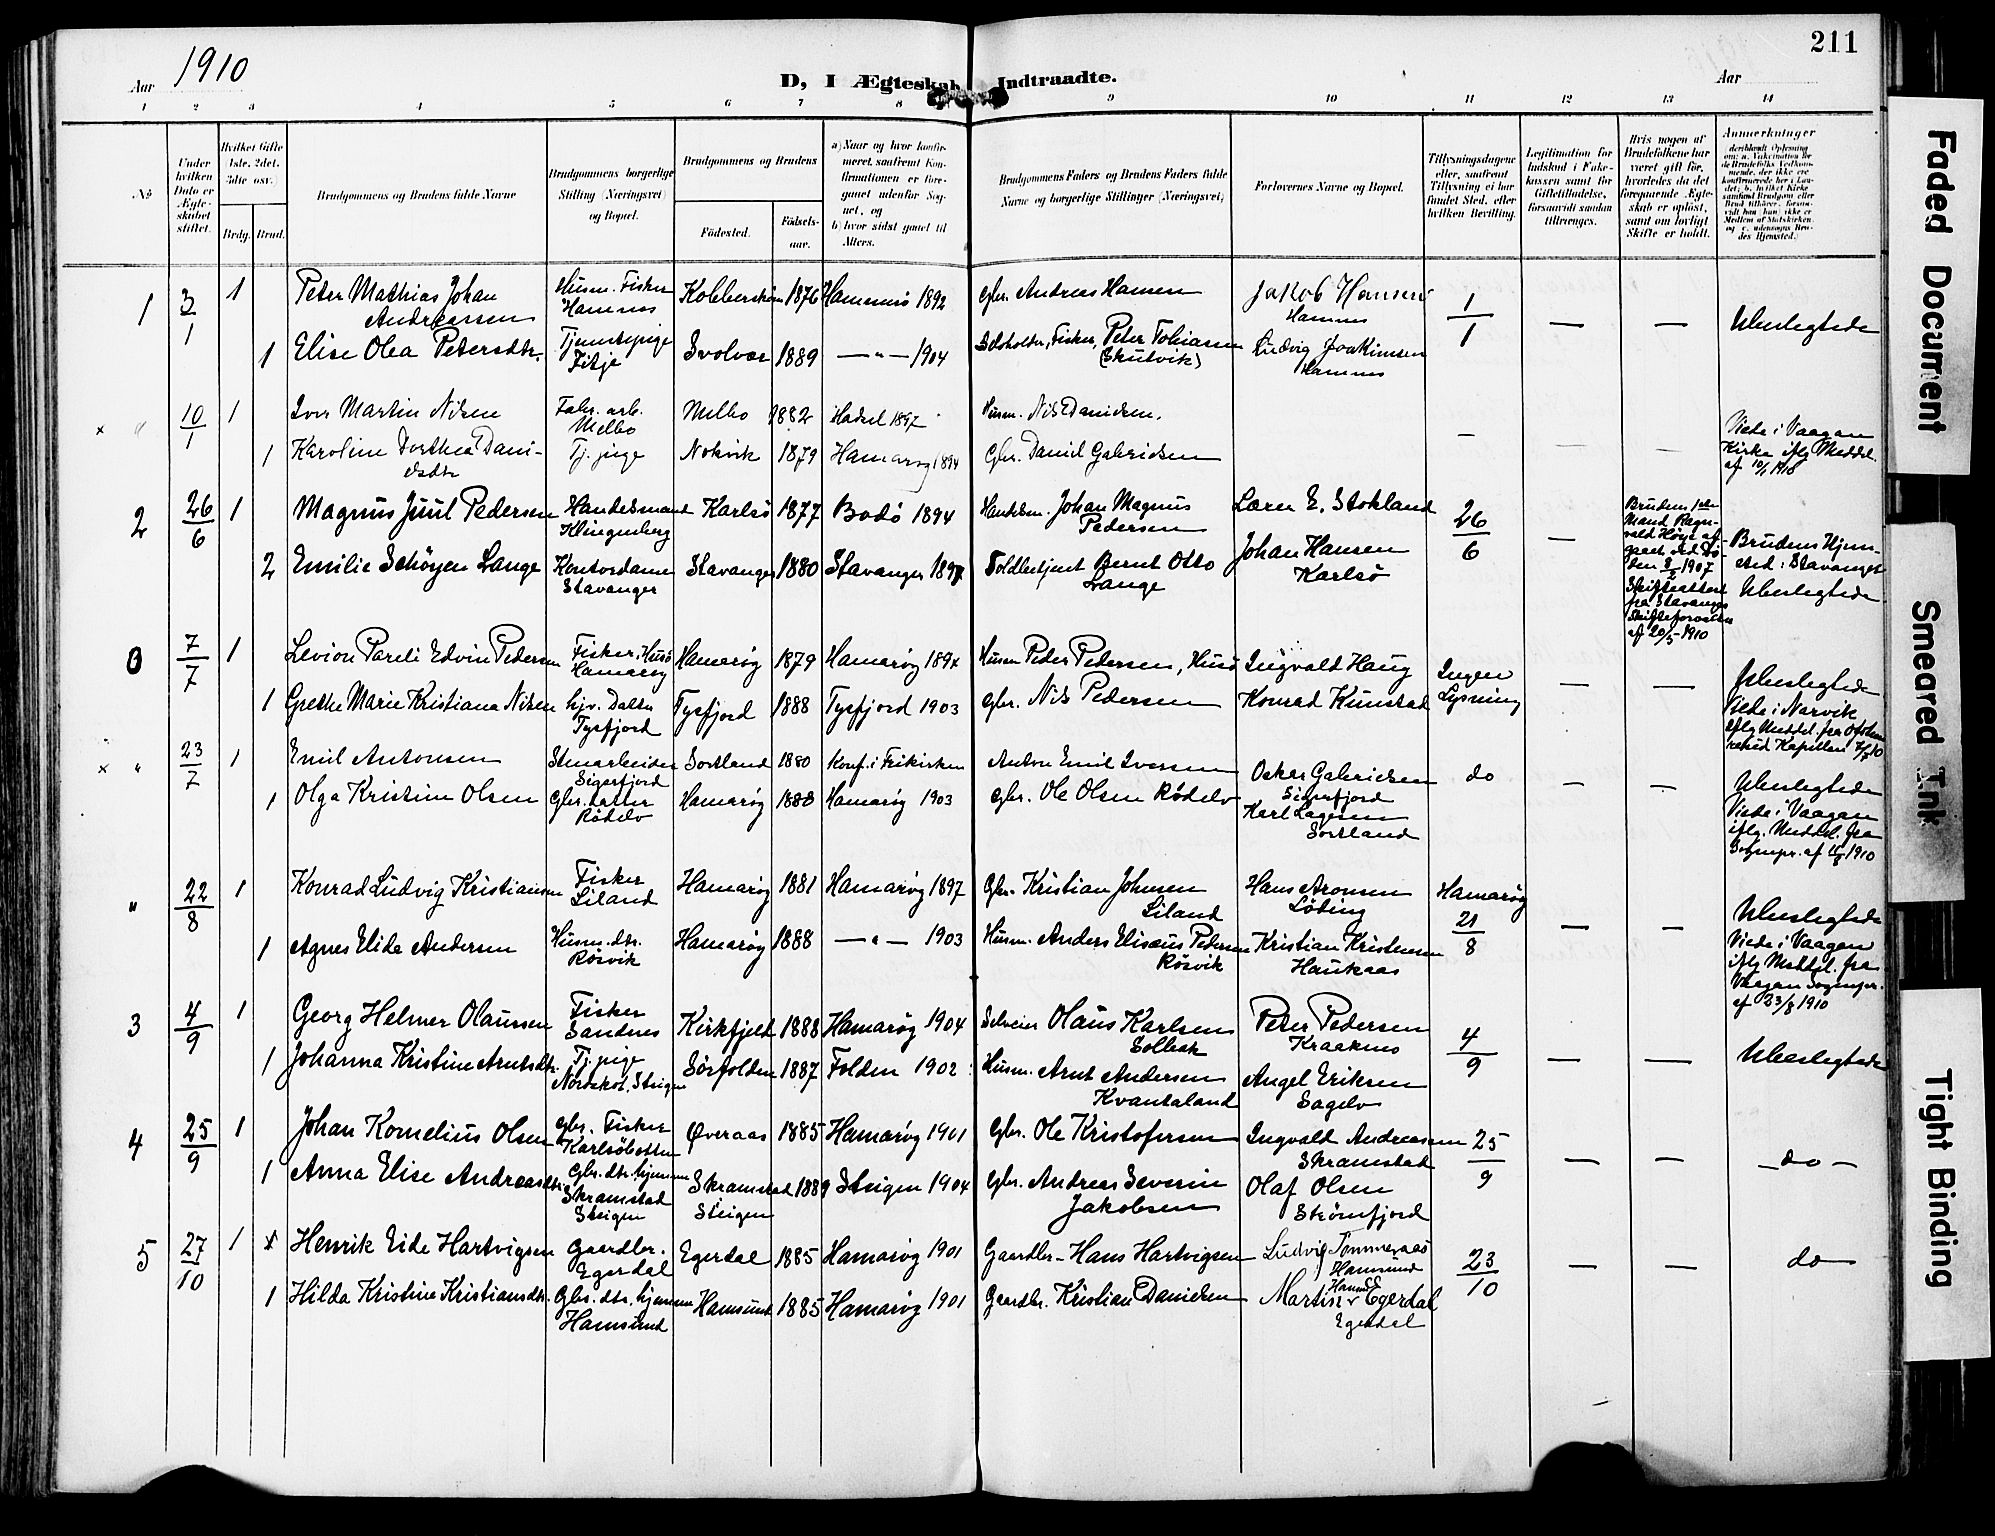 211
Aar 1910
D, I Ægteskab Indtraadte.
Aar
1 2 3 4 5 6 7 8 9 10 11 12 13 14
No
Under hvilken Dato er Ægteskabet stiftet.
Hvilket Gifte (1ste, 2det, 3die osv.)
Brdg. Brud.
Brudgommens og Brudens fulde Navne
Brudgommens borgerlige Stilling (Næringsvei) og Bopæl.
Brudgommens og Brudens
Födested. Födselsaar.
a) Naar og hvor konfirmeret, saafremt Konfirmationen er foregaaet udenfor Sognet, og
b) hvor sidst gaaet til Alters.
Brudgommens Faders og Brudens Faders fulde Navne og borgerlige Stillinger (Næringsvei)
Forlovernes Navne og Bopæl.
Tillysningsdagene eller, saafremt Tillysning ei har fundet Sted, efter hvilken Bevilling.
Legitimation for Indskud i Enkekassen samt for Giftetilladelse, forsaavidt saadan tiltrænges.
Hvis nogen af Brudefolkene har været gift för, hvorledes da det foregaaende Ægteskab er oplöst, samt om lovligt Skifte er holdt.
Anmerkninger
1 3/1 1 Peter Mathias Johan Andreassen
Husm. Fisker Hamnes
1876 Hammerö 1892
Gbr. Andreas Hansen
Jakob Hansen Hamnes
1/1 — — Ubeslegtede
1 Elise Olea Petersdtr.
Tjenestepige
Svolvær 1889 — " — 1904
Fisker, Peter Tobiassen (Skutvik)
Ludvig Joakimsen Hamnes
× " 10/1 1 Iver Martin Nilsen
Fabr. arb. Melbo
Melbo 1882 Hadsel 1897
Husm. Nils Danielsen.
— — —
Viede i Vaagan Kirke iflg Meddel. af 10/1 1910
1 Karoline Dorthea Danielsdtr
Tj. pige
1879 Hamarøy 1894
Gbr. Daniel Gabrielsen
2 26/6 1 Magnus Juul Pedersen
Handelsmand Klingenberg
Karlsö 1877 Bodö 1894
Handelsm. Johan Magnus Pedersen
Lars E. Stokland
26/6 —
Brudens 1ste Mand Ragnvald Höye afgaaet ved Döden 8/2 1907 Skifteattest fra Stavanger Skifteforvalter af 20/5 1910
Brudens Hjemsted: Stavanger Ubeslegtede
2 Emilie Schöyen Lange
Kontordame Stavanger
Stavanger 1880 Stavanger 1897
Toldbetjent Bernt Otto Lange
Johan Hansen Karlsö
0 7/7 1 Levion Pareli Edvin Pedersen
Fisker, Husö Hamarøy
Hamarøy 1879 Hamarøy 1894
Husm Peder Pedersen, Husö
Ingvald Haug
Ingen Lysning — —
Ubeslegtede Viede i Narvik iflg Meddel. fra Ofoten resid Kapellan 7/7 10
1 Grethe Marie Kristiana Nilsen
hjv. Datter Tysfjord
Tysfjord 1888 Tysfjord 1903
Gbr. Nils Pedersen
Konrad Kunstad
× " 23/7 1 Emil Antonsen
Stenarbeider Sigerfjord
Sortland 1880 Konf. i Frikirken
Anton Emil Iversen
Oskar Gabrielsen Sigerfjord
do — —
Ubeslegtede Viede i Vaagan iflg. Meddel. fra Sognepr. af 1910
1 Olga Kristine Olsen
Gbr. datter Rödelv
Hamarøy 1888 Hamarøy 1903
Gbr. Ole Olsen Rödelv
Karl Sortland
" 22/8 1 Konrad Ludvig Kristiansen
Fisker Liland
Hamarøy 1881 Hamarøy 1897
Gbr. Kristian Johnsen Liland
Hans Aronsen Löding
Hamarøy 21/8 — —
Ubeslegtede Viede i Vaagan iflg Meddel. fra Vaagan Sognepr. af 23/8 1910
1 Agnes Elida Andersen
Husm. dtr. Rösvik
Hamarøy 1888 — " — 1903
Husm. Anders Elisæus Pedersen Rösvik
Kristian Kristensen Haukaas
3 4/9 1 Georg Helmer Olaussen
Fisker Sandnes
Kirkfjeld 1888 Hamarøy 1904
Selveier Olaus Karlsen Solbak
Peter Pedersen Kraakmo
4/9 — — Ubeslegtede
1 Johanna Kristine Arntsdtr.
Tj. pige Nordskot, Steigen
Sörfolden 1887 Folden 1902
Husm. Arnt Andersen Kvantaland
Angel Eriksen Sagelv
4 25/9 1 Johan Kornelius Olsen
Gbr. Fisker Karlsöbotten
Øveraas 1885 Hamarøy 1901
Gbr. Ole Kristofersen
Ingvald Andreassen Skramstad
25/9 — — — do —
1 Anna Elise Andreasdtr.
Gbr. dtr. hjemme Skramstad Steigen
Skramstad Steigen 1889 Steigen 1904
Gbr. Andreas Severin Jakobsen
Olaf Olsen Strömfjord
5 27/10 1 × Henrik Eide Hartvigsen
Gaardbr. Egerdal
Egerdal 1885 Hamarøy 1901
Gaardbr. Hans Hartvigsen
Ludvig Tømmeraas Hamsund
23/10 — — do
1 Hilda Kristine Kristiansdtr.
Gbr. dtr. hjemme Hamsund
Hamsund 1885 Hamarøy 1901
Gaardbr. Kristian Danielsen
Martin Egerdal Egerdal
Faded Document
Smeared Ink
Tight Binding